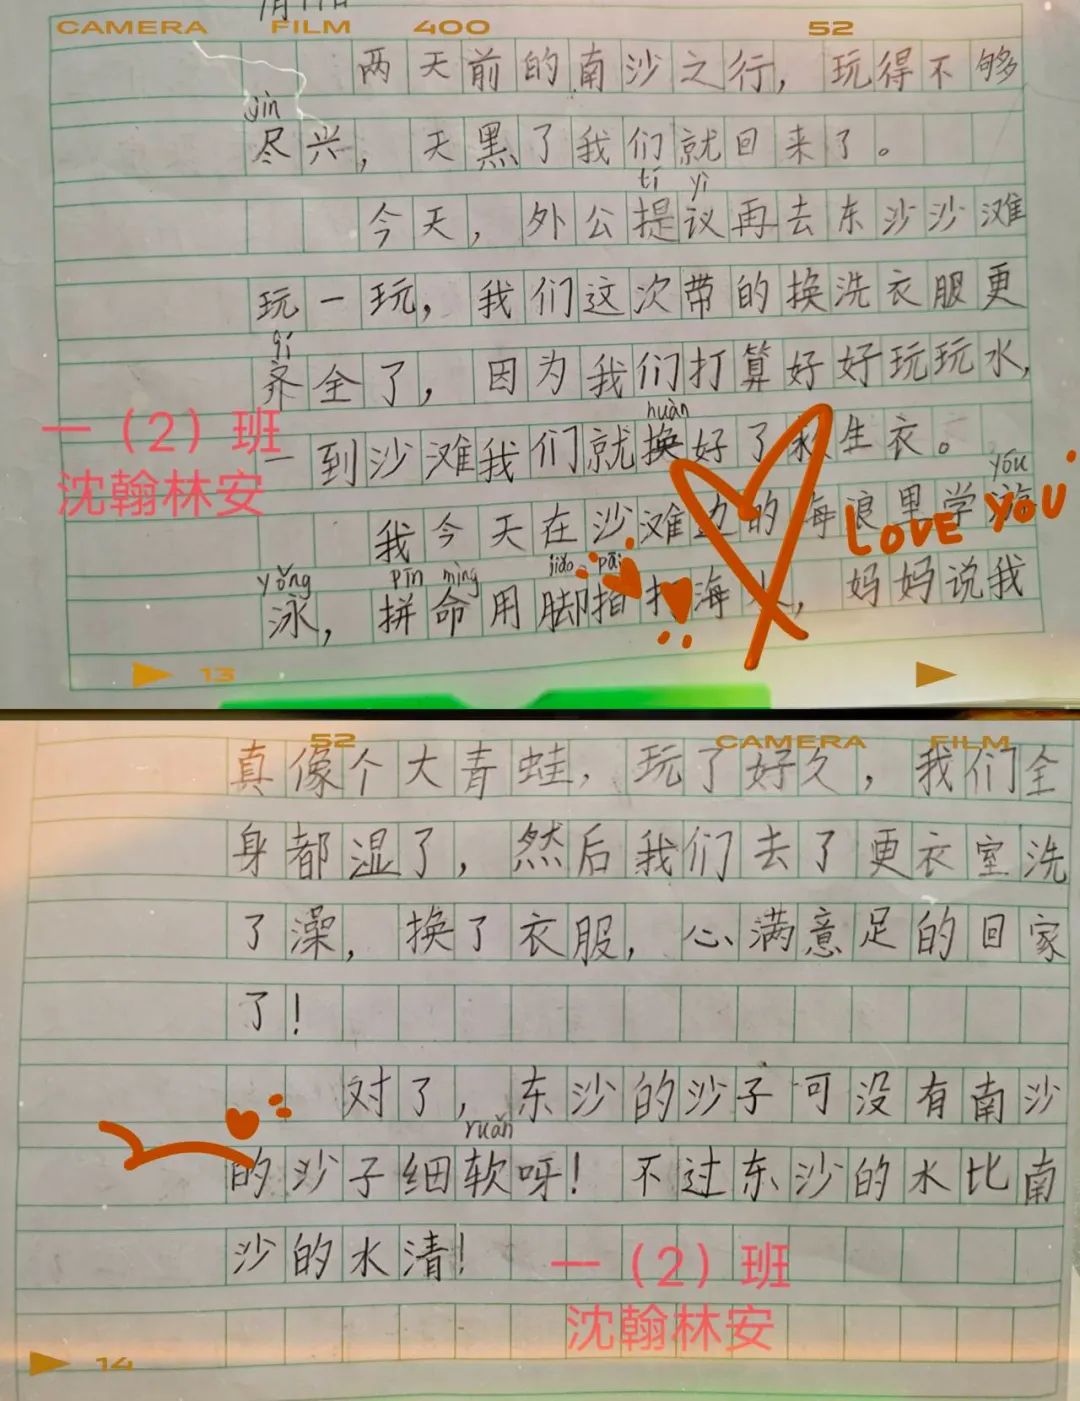 CAMERA FILM 400 52
两天前的南沙之行，玩得不够
jìn
尽兴，天黑了我们就回来了。
tí yì
今天，外公提议再去东沙沙滩
玩一玩，我们这次带的换洗衣服更
qí
齐全了，因为我们打算好好玩玩水，
huàn
一到沙滩我们就换好了救生衣。
一（2）班
沈翰林安
yóu
我今天在沙滩边的海浪里学
LOVE YOU
yǒng pīn mìng jiǎo pāi
泳，拼命用脚拍打海水，妈妈说我
13
52 CAMERA FILM
真像个大青蛙，玩了好久，我们全
身都湿了，然后我们去了更衣室洗
了澡，换了衣服，心满意足的回家
了！
对了，东沙的沙子可没有南沙
ruǎn
的沙子细软呀！不过东沙的水比南
沙的水清！
一（2）班
沈翰林安
14